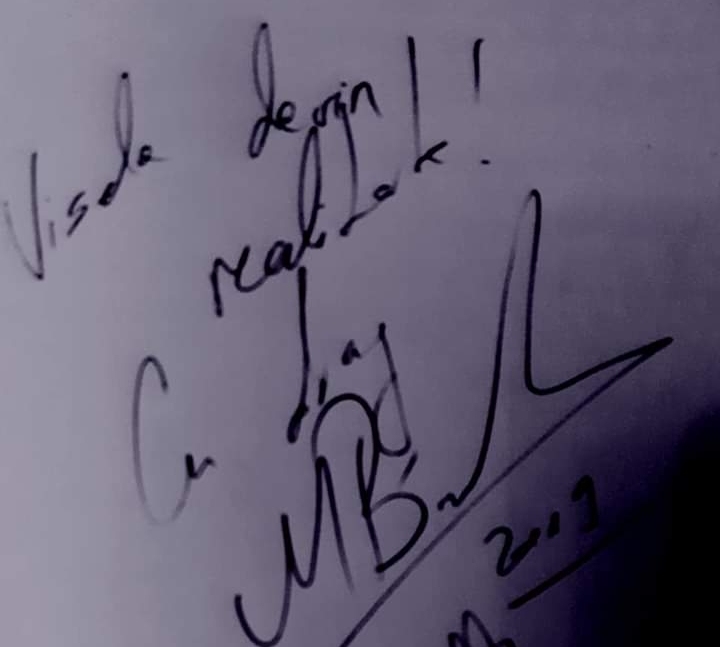 Visele devin
realitate!
Cu drag
2019